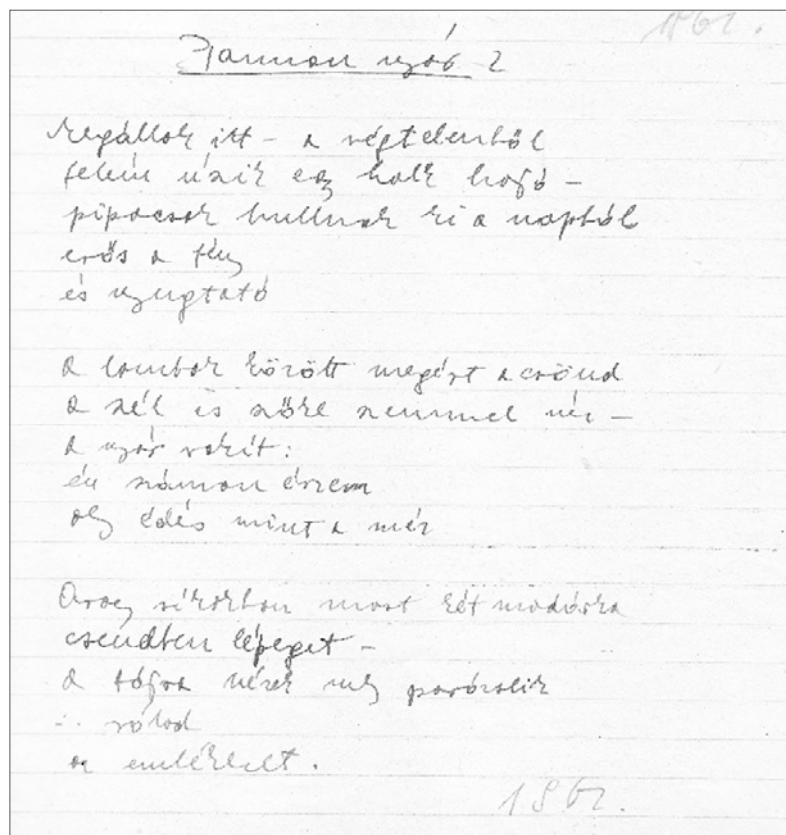 1962.
Pannon nyár 2
Megállok itt – a végtelenből
felém úszik egy halk hajó –
pipacsok hullnak ki a napból
erős a fény
és nyugtató
a lombok között megért a csönd
a szél is szőke szemmel néz –
a nyár vakít:
én számon érzem
oly édes mint a méz
Arany most két madárka
csendben lépeget –
a tájra nézek még parázslik
rólad
az emlékezet.
1962.